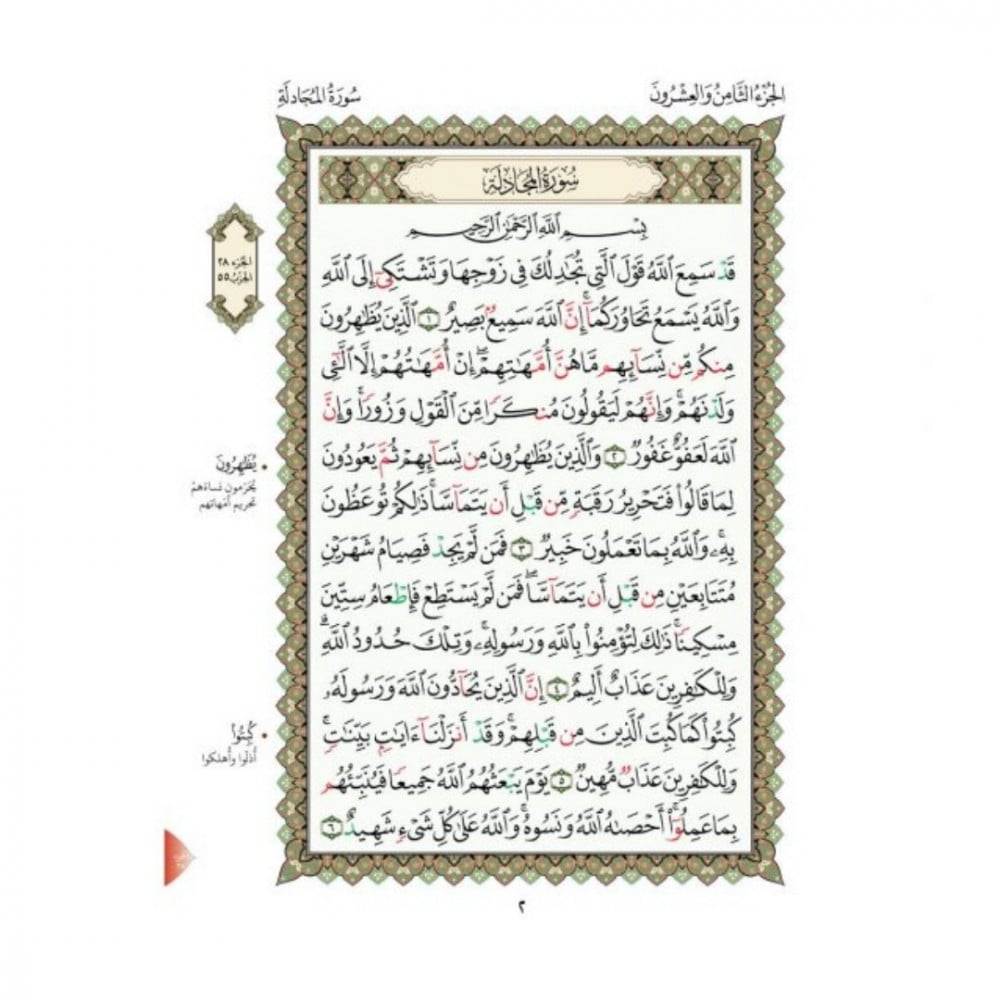 الجُزْءُ الثَّامِنُ وَالعِشْرُونَ
سُورَةُ المُجَادلَةِ
سُورَةُ المُجَادلَةِ
بِسْمِ ٱللَّهِ ٱلرَّحْمَٰنِ ٱلرَّحِيمِ
قَدْ سَمِعَ ٱللَّهُ قَوْلَ ٱلَّتِي تُجَٰدِلُكَ فِي زَوْجِهَا وَتَشْتَكِيٓ إِلَى ٱللَّهِ
وَٱللَّهُ يَسْمَعُ تَحَاوُرَكُمَآۚ إِنَّ ٱللَّهَ سَمِيعٌۢ بَصِيرٌ ١ ٱلَّذِينَ يُظَٰهِرُونَ
مِنكُم مِّن نِّسَآئِهِم مَّا هُنَّ أُمَّهَٰتِهِمْۖ إِنْ أُمَّهَٰتُهُمْ إِلَّا ٱلَّٰٓـِٔي
وَلَدْنَهُمْۚ وَإِنَّهُمْ لَيَقُولُونَ مُنكَرًا مِّنَ ٱلْقَوْلِ وَزُورًاۚ وَإِنَّ
ٱللَّهَ لَعَفُوٌّ غَفُورٌ ٢ وَٱلَّذِينَ يُظَٰهِرُونَ مِن نِّسَآئِهِمْ ثُمَّ يَعُودُونَ
لِمَا قَالُوا۟ فَتَحْرِيرُ رَقَبَةٍ مِّن قَبْلِ أَن يَتَمَآسَّاۚ ذَٰلِكُمْ تُوعَظُونَ
بِهِۦۚ وَٱللَّهُ بِمَا تَعْمَلُونَ خَبِيرٌ ٣ فَمَن لَّمْ يَجِدْ فَصِيَامُ شَهْرَيْنِ
مُتَتَابِعَيْنِ مِن قَبْلِ أَن يَتَمَآسَّاۖ فَمَن لَّمْ يَسْتَطِعْ فَإِطْعَامُ سِتِّينَ
مِسْكِينًاۚ ذَٰلِكَ لِتُؤْمِنُوا۟ بِٱللَّهِ وَرَسُولِهِۦۚ وَتِلْكَ حُدُودُ ٱللَّهِۗ
وَلِلْكَٰفِرِينَ عَذَابٌ أَلِيمٌ ٤ إِنَّ ٱلَّذِينَ يُحَآدُّونَ ٱللَّهَ وَرَسُولَهُۥ
كُبِتُوا۟ كَمَا كُبِتَ ٱلَّذِينَ مِن قَبْلِهِمْۚ وَقَدْ أَنزَلْنَآ ءَايَٰتٍۭ بَيِّنَٰتٍۚ
وَلِلْكَٰفِرِينَ عَذَابٌ مُّهِينٌ ٥ يَوْمَ يَبْعَثُهُمُ ٱللَّهُ جَمِيعًا فَيُنَبِّئُهُم
بِمَا عَمِلُوٓا۟ۚ أَحْصَىٰهُ ٱللَّهُ وَنَسُوهُۚ وَٱللَّهُ عَلَىٰ كُلِّ شَيْءٍ شَهِيدٌ ٦
الجزء ٢٨
الحزب ٥٥
• يُظَٰهِرُونَ
يُحَرِّمون نساءَهُمْ
تحريم أمّهاتهم
• كُبِتُوا۟
أُذِلّوا وأُهلكوا
٢